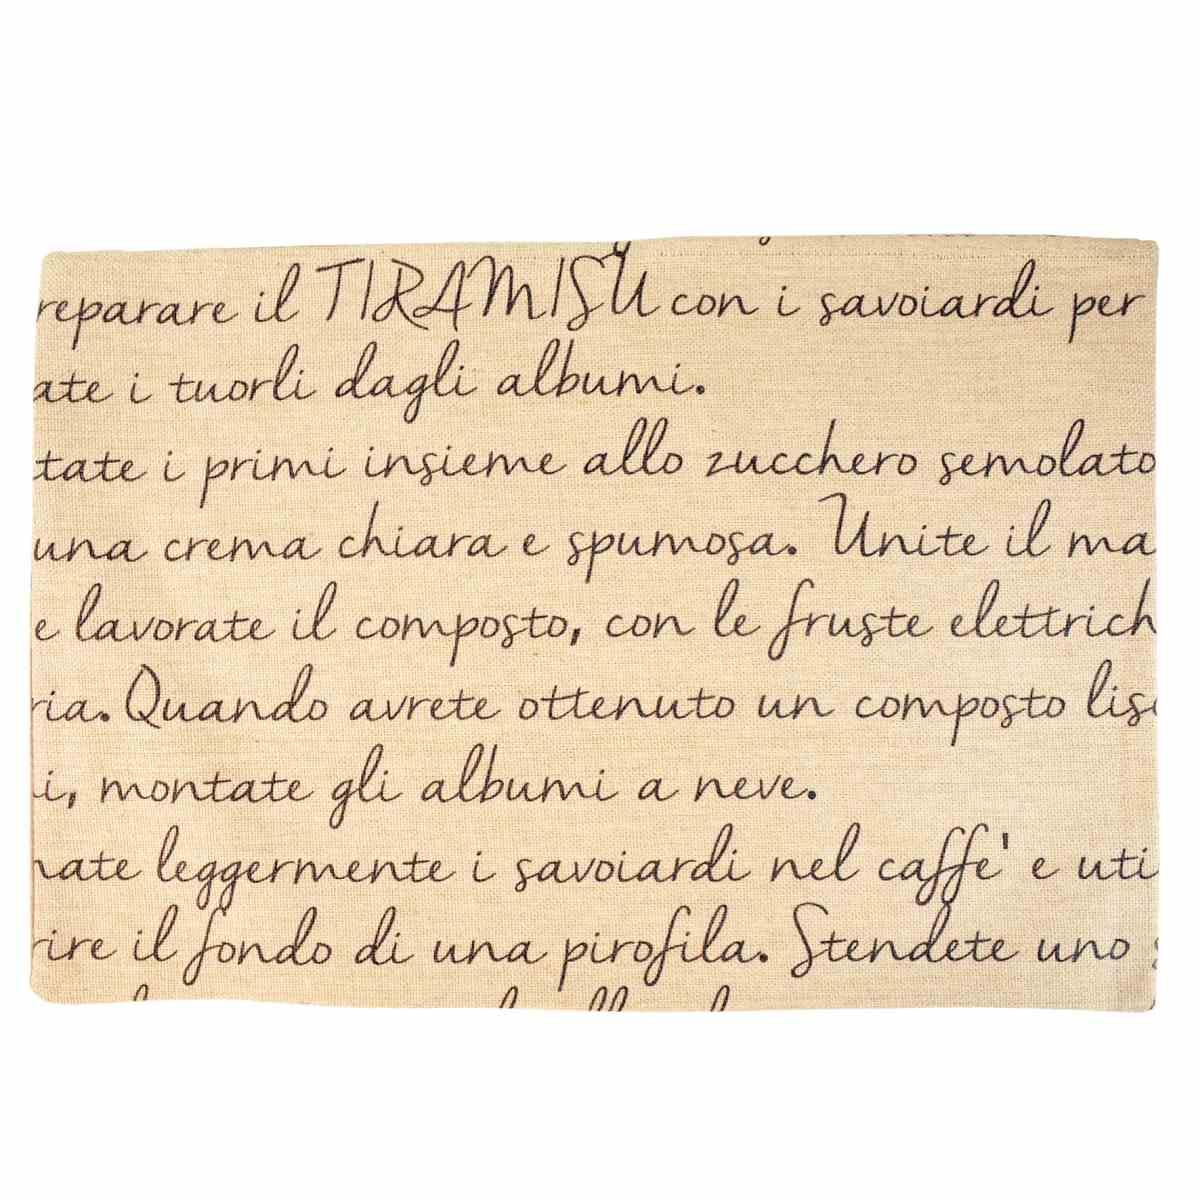 reparare il TIRAMISU con i savoiardi per
ate i tuorli dagli albumi.
tate i primi insieme allo zucchero semolato
una crema chiara e spumosa. Unite il ma
e lavorate il composto, con le fruste elettrich
ria. Quando avrete ottenuto un composto lis
i, montate gli albumi a neve.
nate leggermente i savoiardi nel caffe' e uti
rire il fondo di una pirofila. Stendete uno